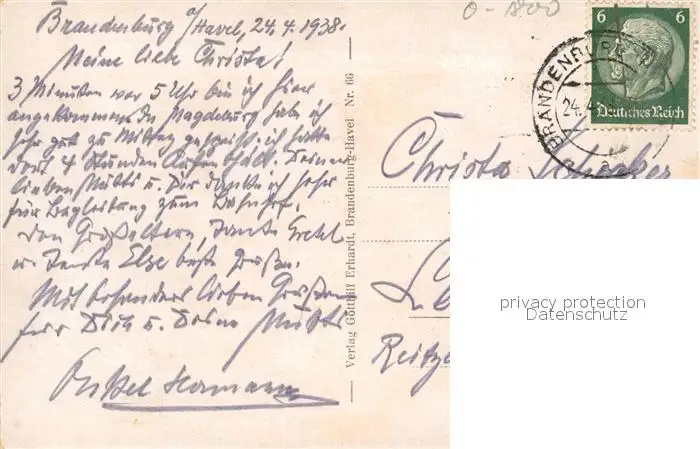 Brandenburg a/Havel, 24.4.1938.
Meine liebe Christa!
3 Minuten vor 5 Uhr bin ich hier
angekommen. In Magdeburg hab ich
sehr gut zu Mittag gespeist, ich hatte
dort 4 Stunden Aufenthalt. Deiner
lieben Mutti u. Dir danke ich sehr
für Begleitung zum Bahnhof.
Von Großeltern, Tante Gretel
u. Tante Else beste Grüße.
Mit besonders lieben Grüßen
für Dich u. Deine Mutti
Onkel Hermann
Verlag Gotthilf Erhardt, Brandenburg-Havel Nr. 66
6 6
Deutsches Reich
BRANDENBURG
24.4
a
Christa
Reitze
privacy protection
Datenschutz